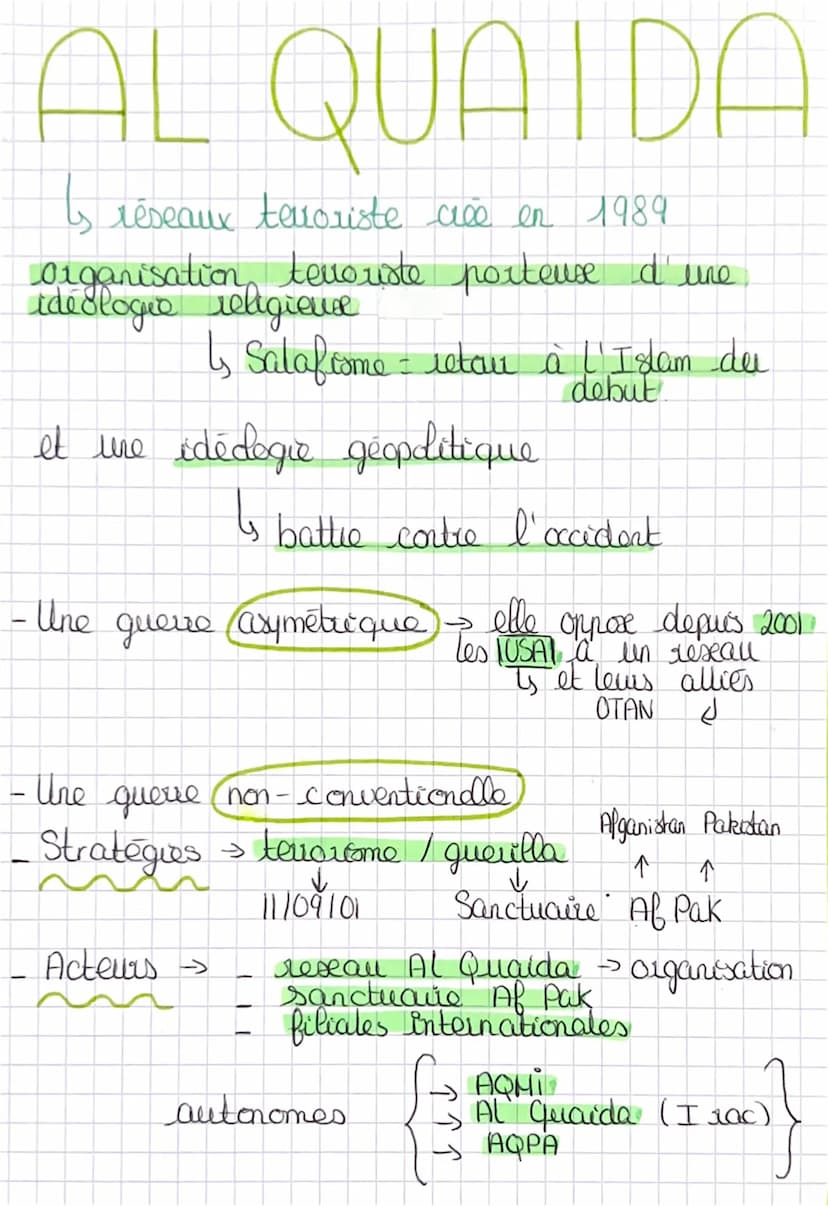 AL QUAIDA
↳ réseaux terroriste crée en 1989
organisation terroriste porteuse d'une
idéologie religieuse
↳ Salafisme = retour à l'Islam du
debut.
et une idéologie géopolitique
↳ battre contre l'occident
- Une guerre asymétrique → elle oppose depuis 2001
les USA à un reseau
↳ et leurs alliés
OTAN ↲
- Une guerre non-conventionelle
Afganistan Pakistan
- Stratégies → terrorisme / guerilla ↑ ↑
↓ ↓
11/09/01 Sanctuaire Af Pak
- Acteurs → - reseau Al Quaida → organisation
- sanctuaire Af Pak
- filiales internationales
→ AQMi
autonomes → Al Quaida (Irac)
→ AQPA